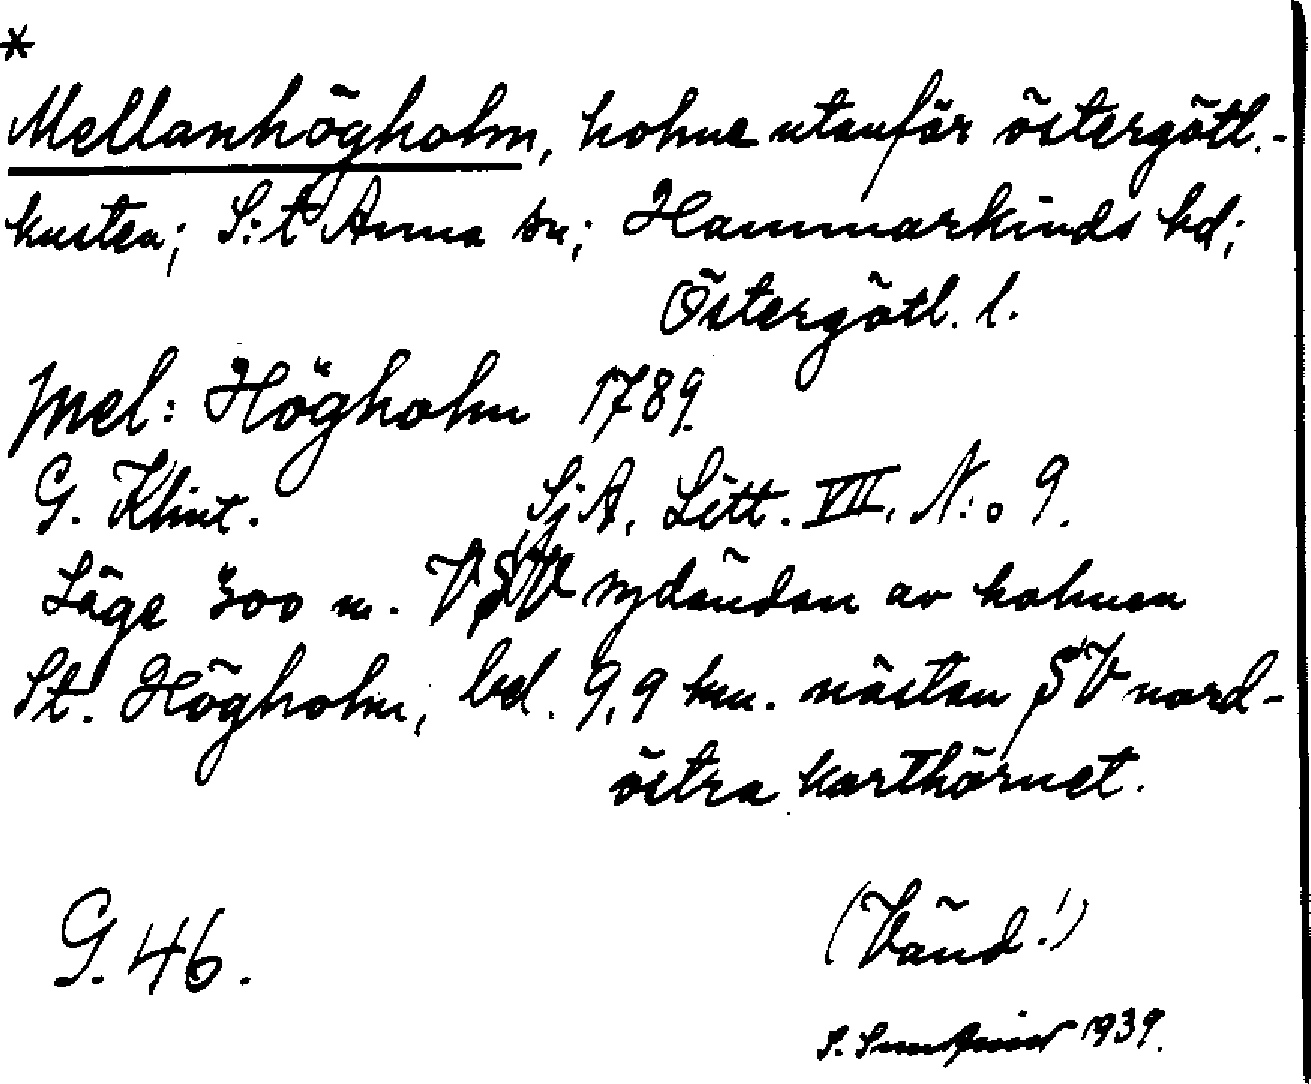 *
Mellanhögholm, holme utanför östergötl.-
kusten; S:t Anna sn; Hammarkinds hd;
Östergötl. l.
Mel: Högholm 1789.
G. Klint. SjA, Litt. VII, N:o 9.
Läge 300 m. VSV sydändan av holmen
St. Högholm, bel. 9,9 km. nästan SV nord-
östra karthörnet.
G. 46.
(Vänd!)
S. 1939.